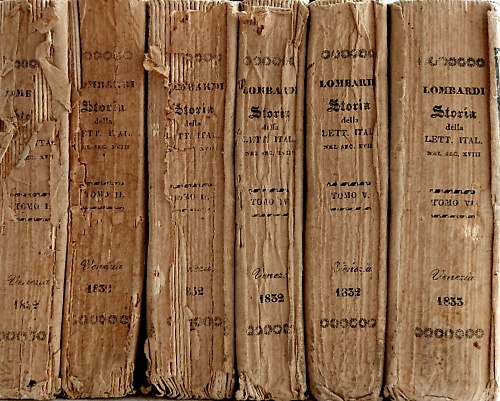 LOMBARDI
Storia
LETT. ITAL.
NEL SEC. XVIII
TOMO I.
Venezia
1832
LOMBARDI
Storia
della
LETT. ITAL.
NEL SEC. XVIII
TOMO II.
Venezia
1832
LOMBARDI
Storia
della
LETT. ITAL.
NEL SEC. XVIII
TOMO
Venezia
1832
LOMBARDI
Storia
della
LETT. ITAL.
NEL SEC. XVIII
TOMO IV
Venezia
1832
LOMBARDI
Storia
della
LETT. ITAL.
NEL SEC. XVIII
TOMO V.
Venezia
1832
LOMBARDI
Storia
della
LETT. ITAL.
NEL SEC. XVIII
TOMO VI.
Venezia
1833